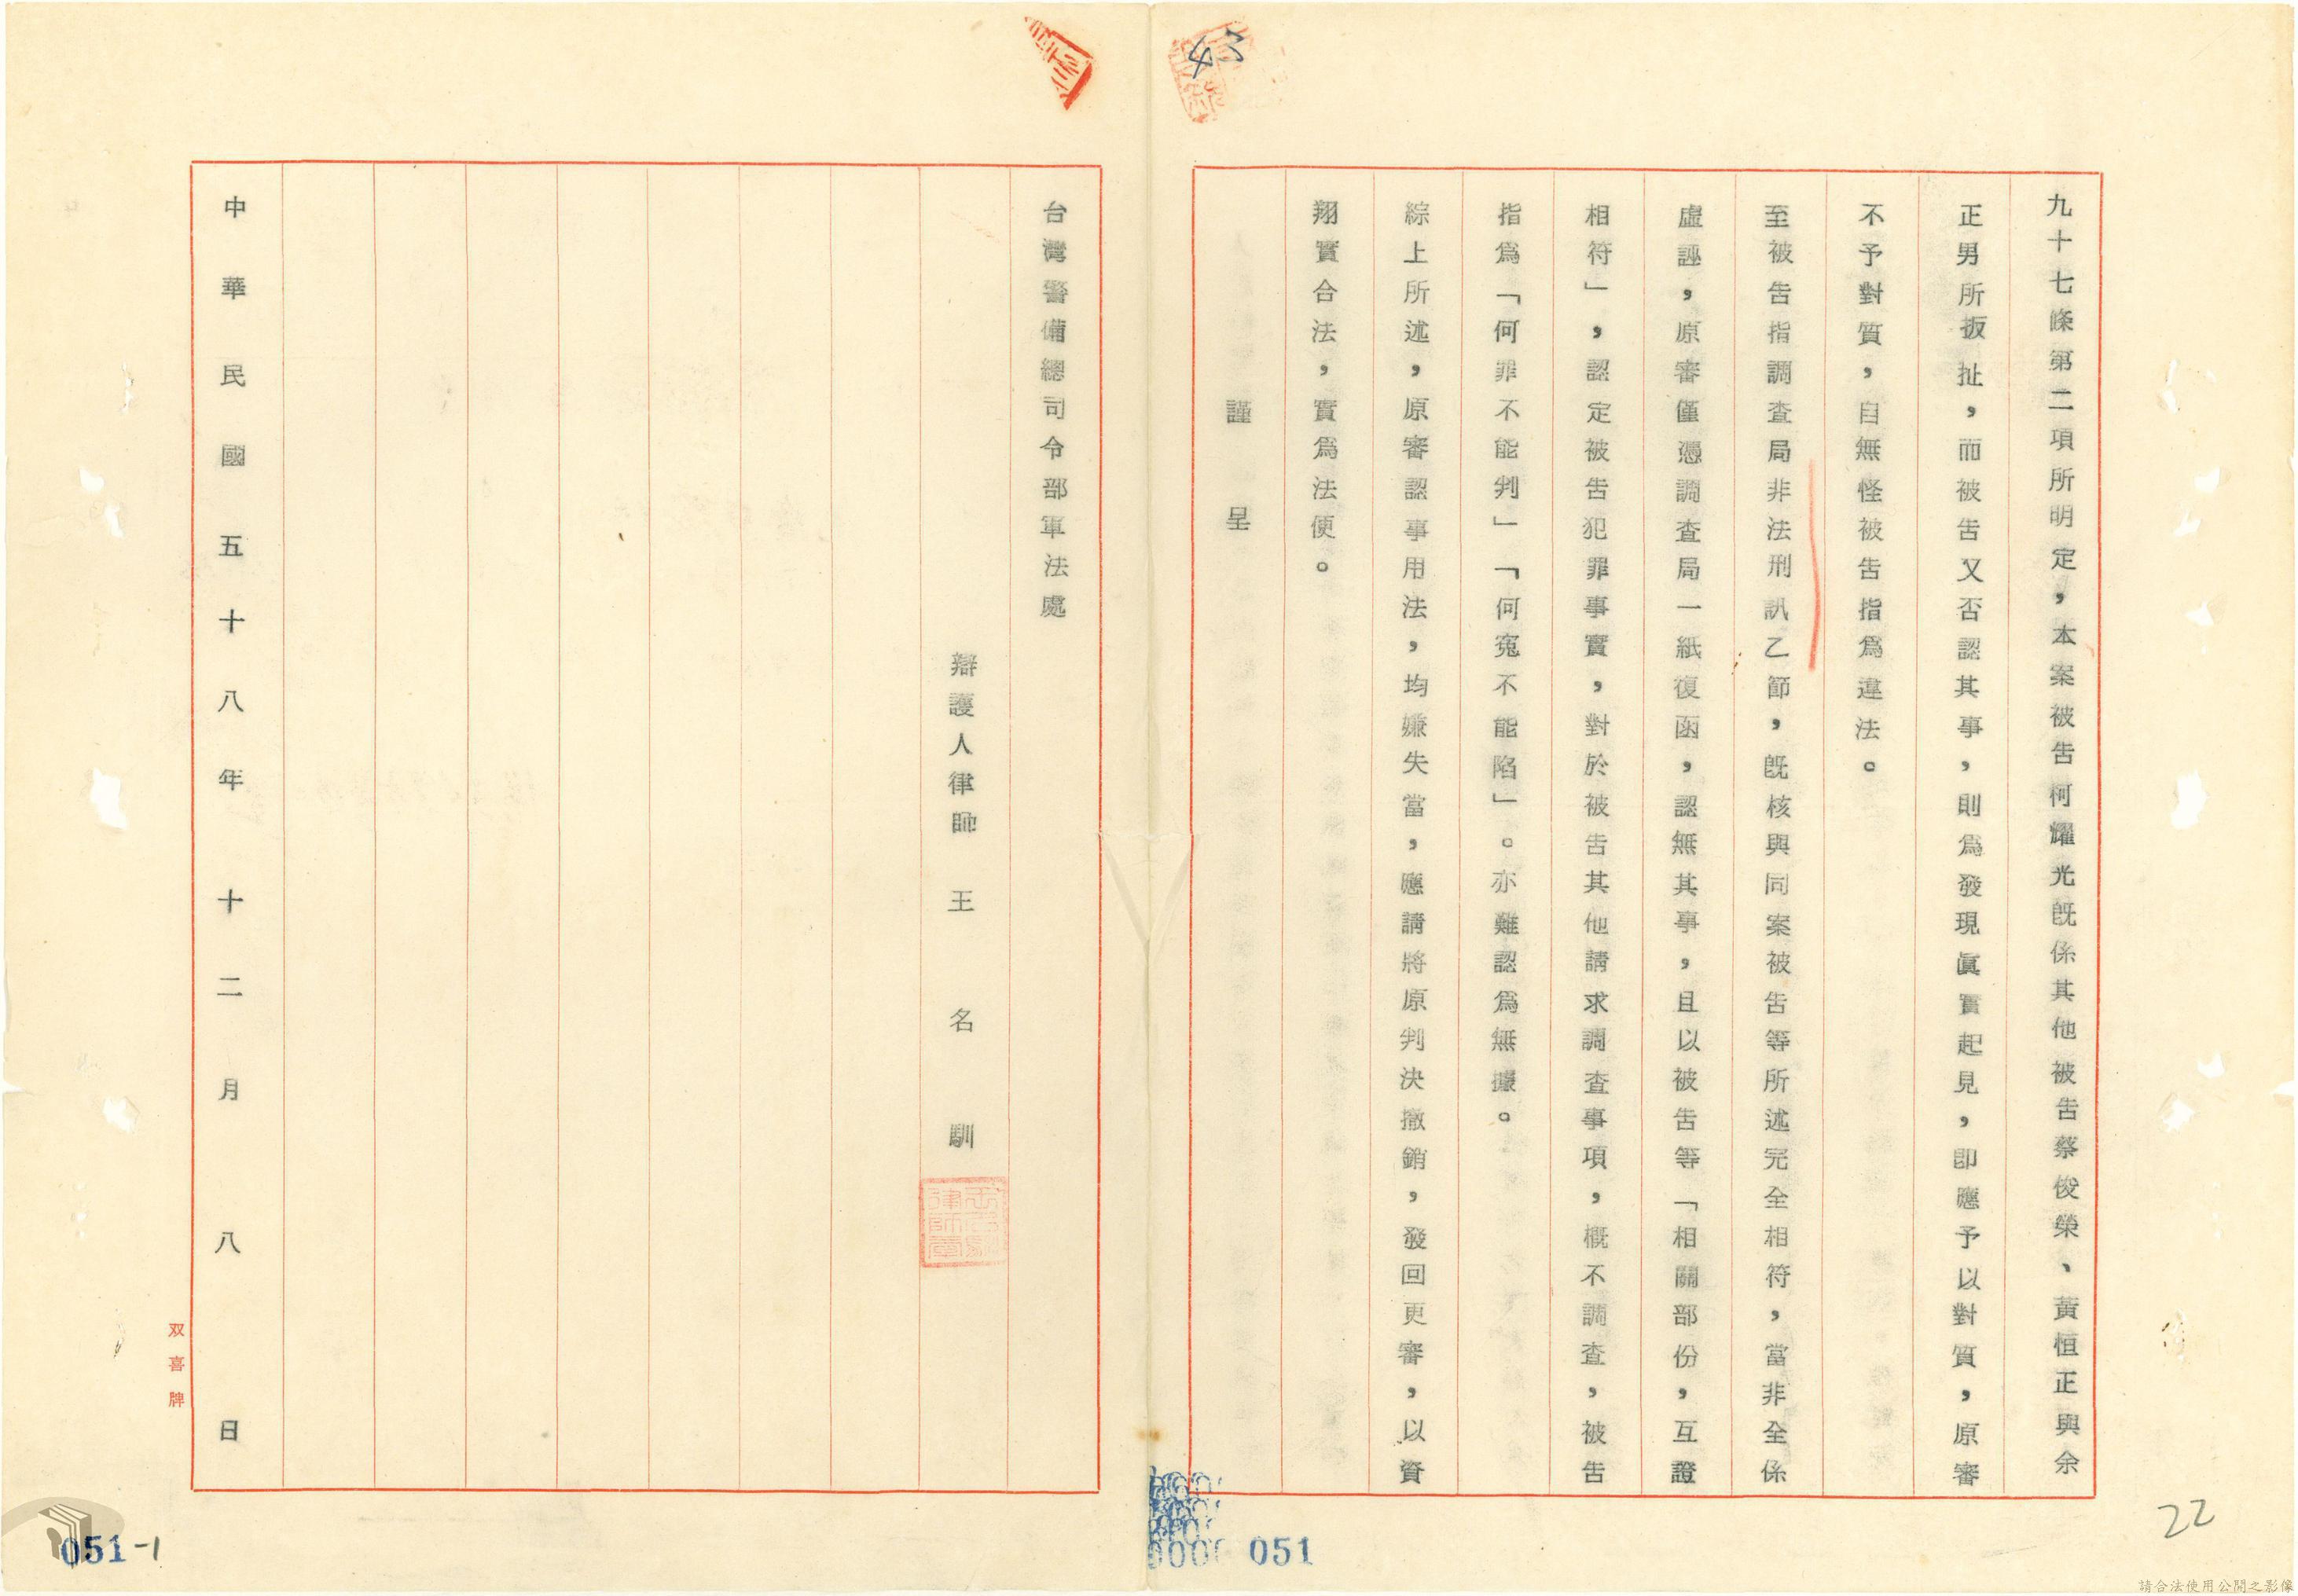 45
九十七條第二項所明定，本案被告柯耀光旣係其他被告蔡俊榮、黃恒正與余
正男所扳扯，而被告又否認其事，則爲發現眞實起見，卽應予以對質，原審
不予對質，自無怪被告指爲違法。
至被告指調查局非法刑訊乙節，旣核與同案被告等所述完全相符，當非全係
虛誣，原審僅憑調查局一紙復函，認無其事，且以被告等「相關部份，互證
相符」，認定被告犯罪事實，對於被告其他請求調查事項，概不調查，被告
指爲「何罪不能判」「何冤不能陷」。亦難認爲無據。
綜上所述，原審認事用法，均嫌失當，應請將原判決撤銷，發回更審，以資
翔實合法，實爲法便。
謹呈
22
051
台灣警備總司令部軍法處
辯護人律師 王名馴
王名馴律師章
中華民國五十八年十二月八日
双喜牌
051-1
請合法使用公開之影像